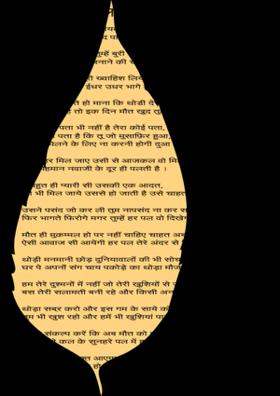 म्हें बुरी
मनाने की
ख्वाहिश लिए
ईधर उधर भागे
हो माना कि थोडी दे
तो इक दिन मौत खुद तु
पता भी नहीं है तेरा कोई पता,
पता है कि तू जो मुसाफ़िर हुआ,
मिलने के लिए ना करनी होगी दुआ
र मिल जाए उसी से आजकल वो मि
हमान नवाजी के दूर ही पलती है ।
बहुत ही प्यारी सी उसकी एक आदत,
भी मिल जाये उससे हो जाती है उसे चाहत
उसने पसंद जो कर ली तुम नापसंद ना कर स
फिर भागते फिरोगे मगर तुम्हें हर पल वो दिखे
मौत ही मुकम्मल हो पर नहीं चाहिए चाहत अब
ऐसी आवाज सी आयेगी हर पल तेरे अंदर से
थोड़ी मनमानी छोड़ दुनियावालों की भी सोच
घर पे अपनों संग चाय पकोड़े का थोड़ा मौज
हम तेरे दुश्मनों में नहीं जो तेरी खुशियों से
बस तेरी सलामती बनी रहे और किसी अन
थोड़ा सब्र करो और इस गम के साये को
म भी खुश रहो और हमें भी खुशियां पा
संकल्प करें कि अब मौत को
कल के सुनहरे पल में ह